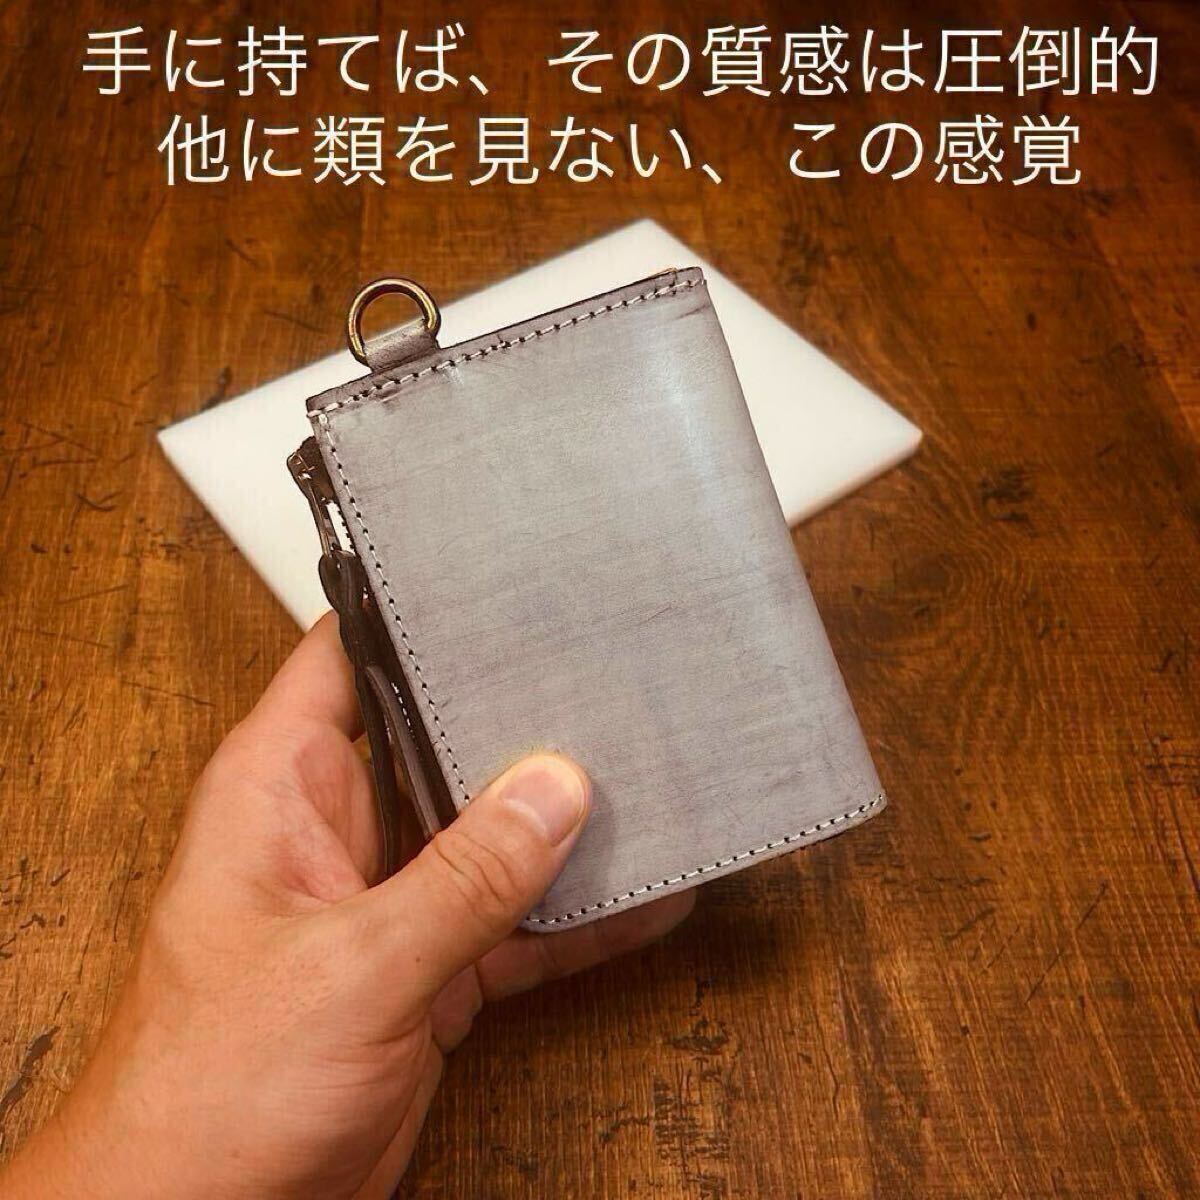 手に持てば、その質感は圧倒的
他に類を見ない、この感覚